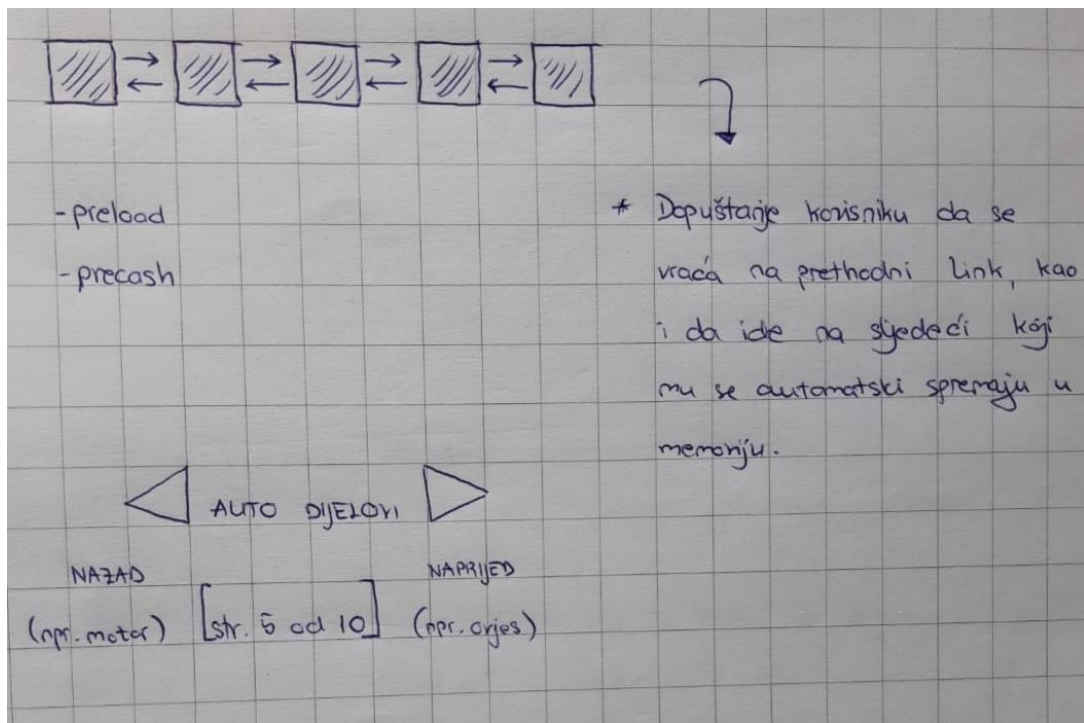 - preload
- precash
* Dopuštanje korisniku da se
vraća na prethodni link, kao
i da ide na sljedeći koji
mu se automatski spremaju u
memoriju.
AUTO DIJELOVI
NAZAD
NAPRIJED
(npr. motor) [str. 5 od 10] (npr. ovjes)